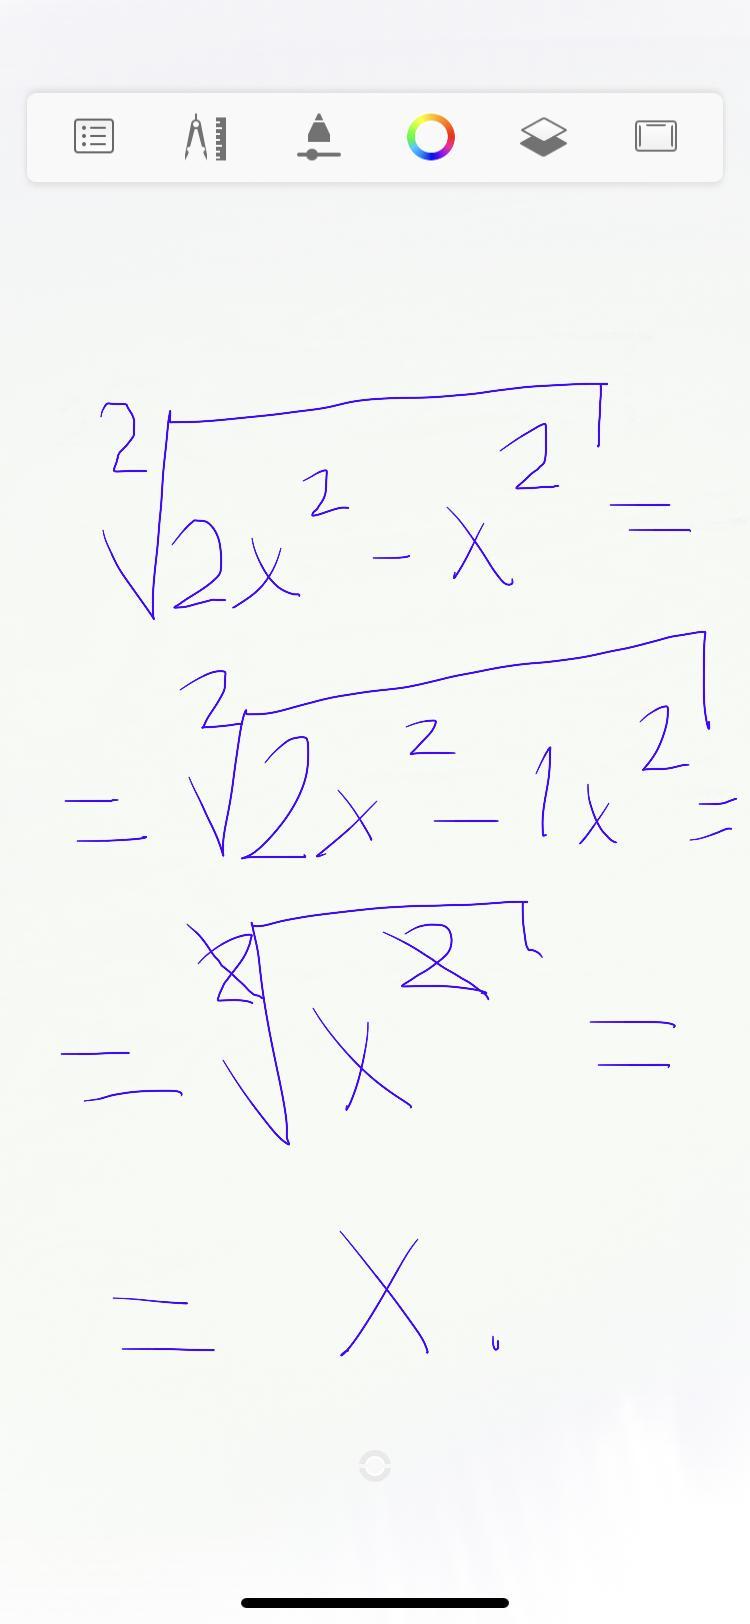 ²√2x² - x² =
= ²√2x² - 1x² =
= ²√x² =
= x.